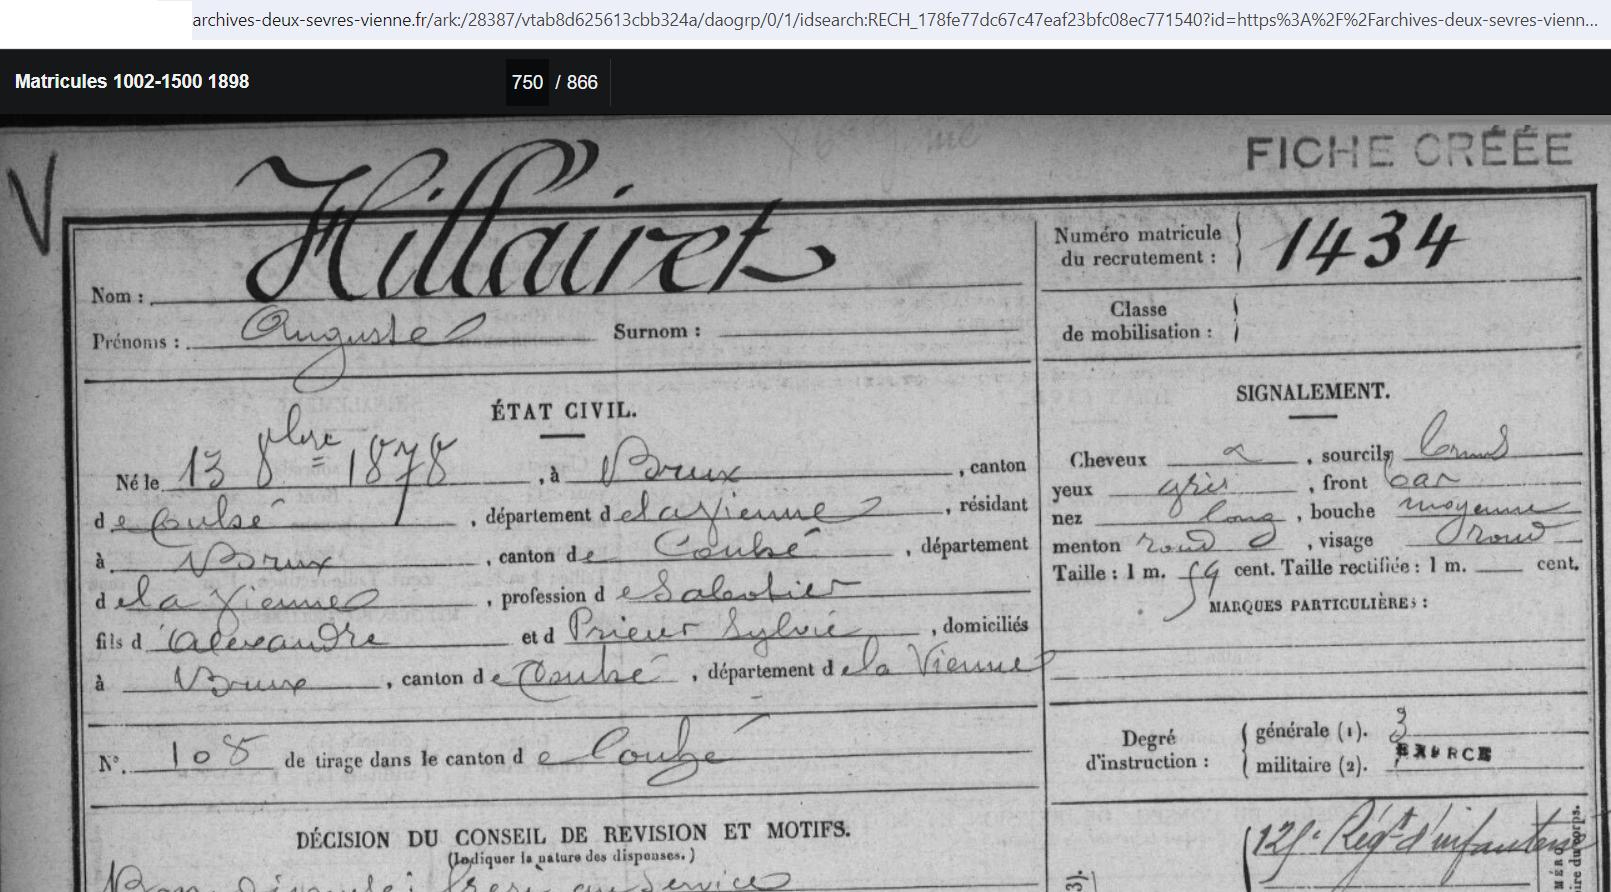 archives-deux-sevres-vienne.fr/ark:/28387/vtab8d625613cbb324a/daogrp/0/1/idsearch:RECH_178fe77dc67c47eaf23bfc08ec771540?id=https%3A%2F%2Farchives-deux-sevres-vienn...
Matricules 1002-1500 1898 750 / 866
FICHE CRÉÉE
Nom : Hillairet
Prénoms : Auguste Surnom :
Numéro matricule du recrutement : 1434
Classe de mobilisation :
ÉTAT CIVIL.
Né le 13 8bre 1878, à Brux, canton
de Couhé, département de la Vienne, résidant
à Brux, canton de Couhé, département
de la Vienne, profession de Sabotier
fils d'Alexandre et d Prieur Sylvie, domiciliés
à Brux, canton de Couhé, département de la Vienne
N°. 108 de tirage dans le canton de Couhé
DÉCISION DU CONSEIL DE REVISION ET MOTIFS.
(Indiquer la nature des dispenses.)
Bon dispensé : frère au service
SIGNALEMENT.
Cheveux, sourcils bruns
yeux gris, front
nez long, bouche moyenne
menton rond, visage rond
Taille : 1 m. 59 cent. Taille rectifiée : 1 m. cent.
MARQUES PARTICULIÈRES :
Degré d'instruction : générale (1). 3
militaire (2). EXERCÉ
125e Régt d'infanterie